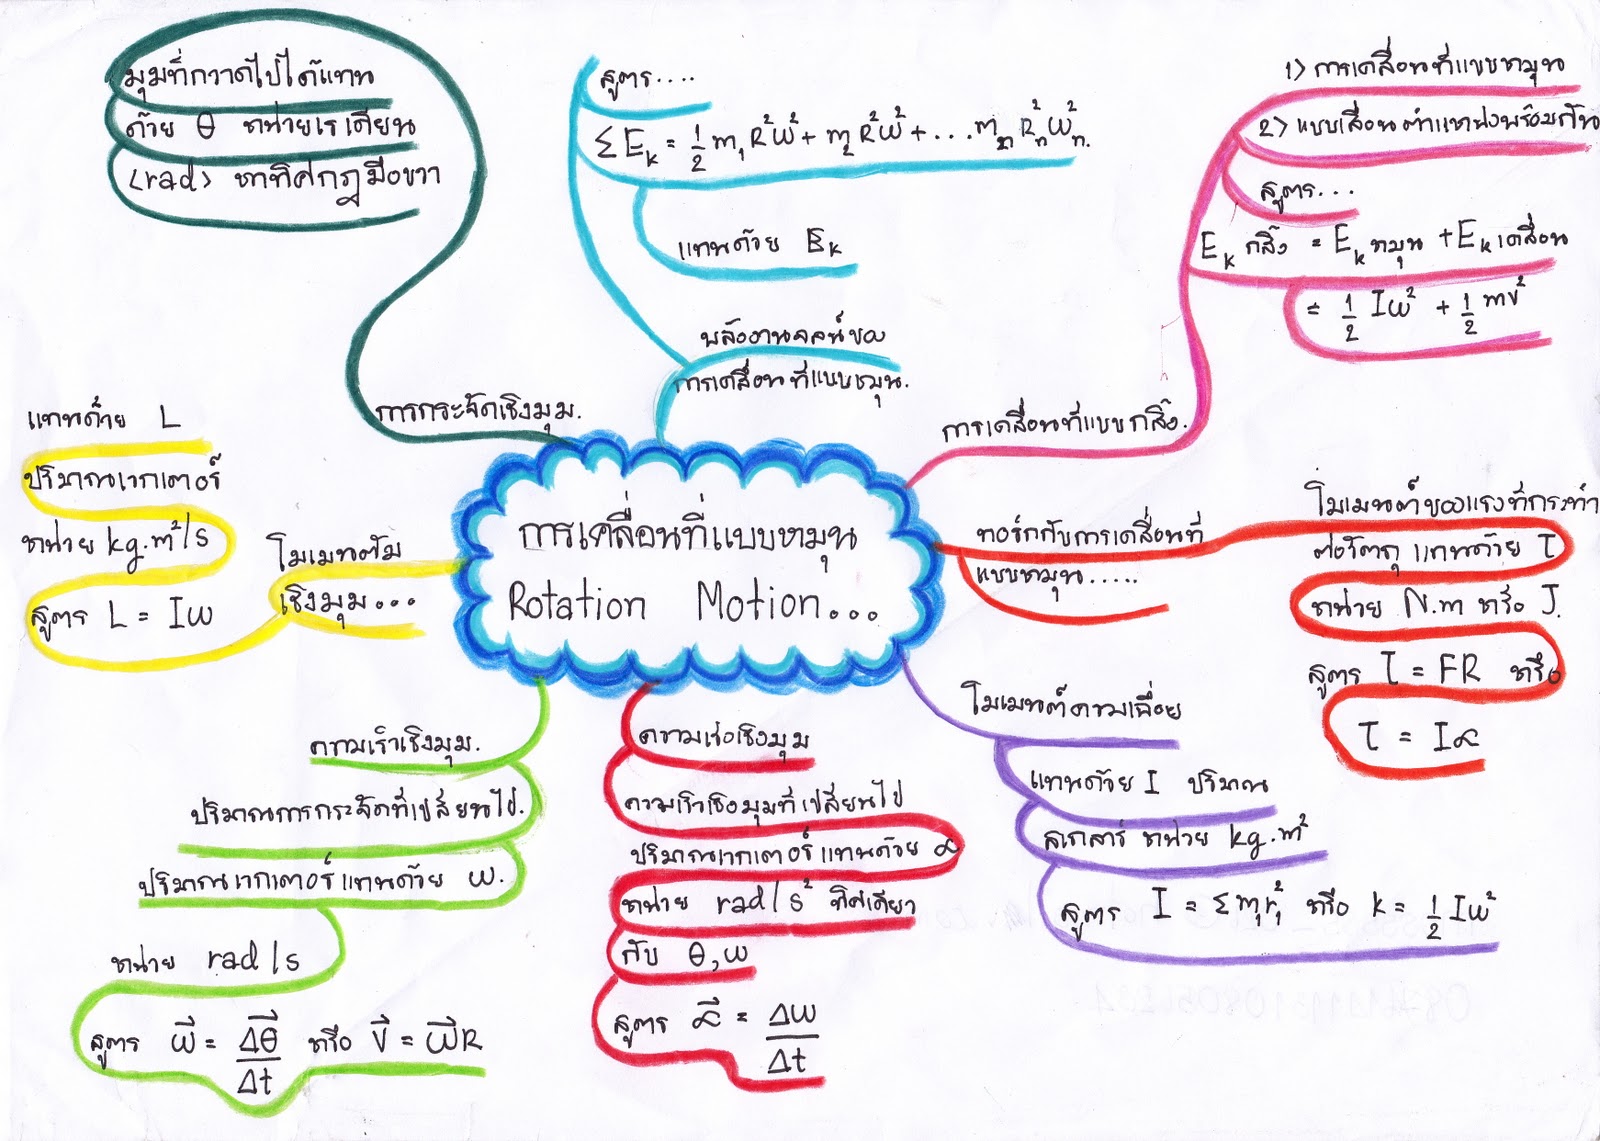 การเคลื่อนที่แบบหมุน
Rotation Motion...
การกระจัดเชิงมุม.
มุมที่กวาดไปได้แทน
ด้วย θ หน่วยเรเดียน
<rad> หาทิศกฎมือขวา
พลังงานจลน์ของ
การเคลื่อนที่แบบหมุน.
สูตร....
ΣEk = 1/2 m₁R²ω² + m₂R²ω² + ... mₙRₙ²ωₙ².
แทนด้วย Ek
การเคลื่อนที่แบบกลิ้ง.
1> การเคลื่อนที่แบบหมุน
2> แบบเลื่อนตำแหน่งพร้อมกัน
สูตร...
Ek กลิ้ง = Ek หมุน + Ek เคลื่อน
= 1/2 Iω² + 1/2 mv²
ทอร์กกับการเคลื่อนที่
แบบหมุน.....
โมเมนต์ของแรงที่กระทำ
ต่อวัตถุ แทนด้วย τ
หน่วย N.m หรือ J.
สูตร τ = FR หรือ
τ = I∝
โมเมนต์ความเฉื่อย
แทนด้วย I ปริมาณ
สเกลาร์ หน่วย kg.m²
สูตร I = Σmᵢrᵢ² หรือ k = 1/2 Iω²
ความเร่งเชิงมุม
ความเร็วเชิงมุมที่เปลี่ยนไป
ปริมาณเวกเตอร์ แทนด้วย ∝
หน่วย rad/s² ทิศเดียว
กับ θ,ω
สูตร ∝⃗ = Δω/Δt
ความเร็วเชิงมุม.
ปริมาณการกระจัดที่เปลี่ยนไป.
ปริมาณเวกเตอร์ แทนด้วย ω.
หน่วย rad/s
สูตร ω⃗ = Δθ⃗/Δt หรือ v⃗ = ω⃗R
โมเมนตัม
เชิงมุม...
แทนด้วย L
ปริมาณเวกเตอร์
หน่วย kg.m²/s
สูตร L = Iω